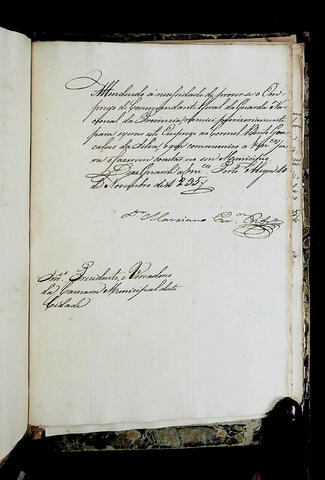 Attendendo á necessidade de prover-se o Em-
prego de Commandante Geral da Guarda Na-
cional da Provincia, nomeei provisoriamente
para exercer este Emprego ao Coronel Bento Gon-
calves da Silva; o que communico a V.as S.as pa-
ra o fazerem constar no seu Municipio.
Deos Guarde a Vm.ces Porto Alegre 10
de Novembro de 1835
D.or Marciano Per.a Rib.o
Snr.s Presidente, e Vereadores
da Camara Municipal desta
Cidade